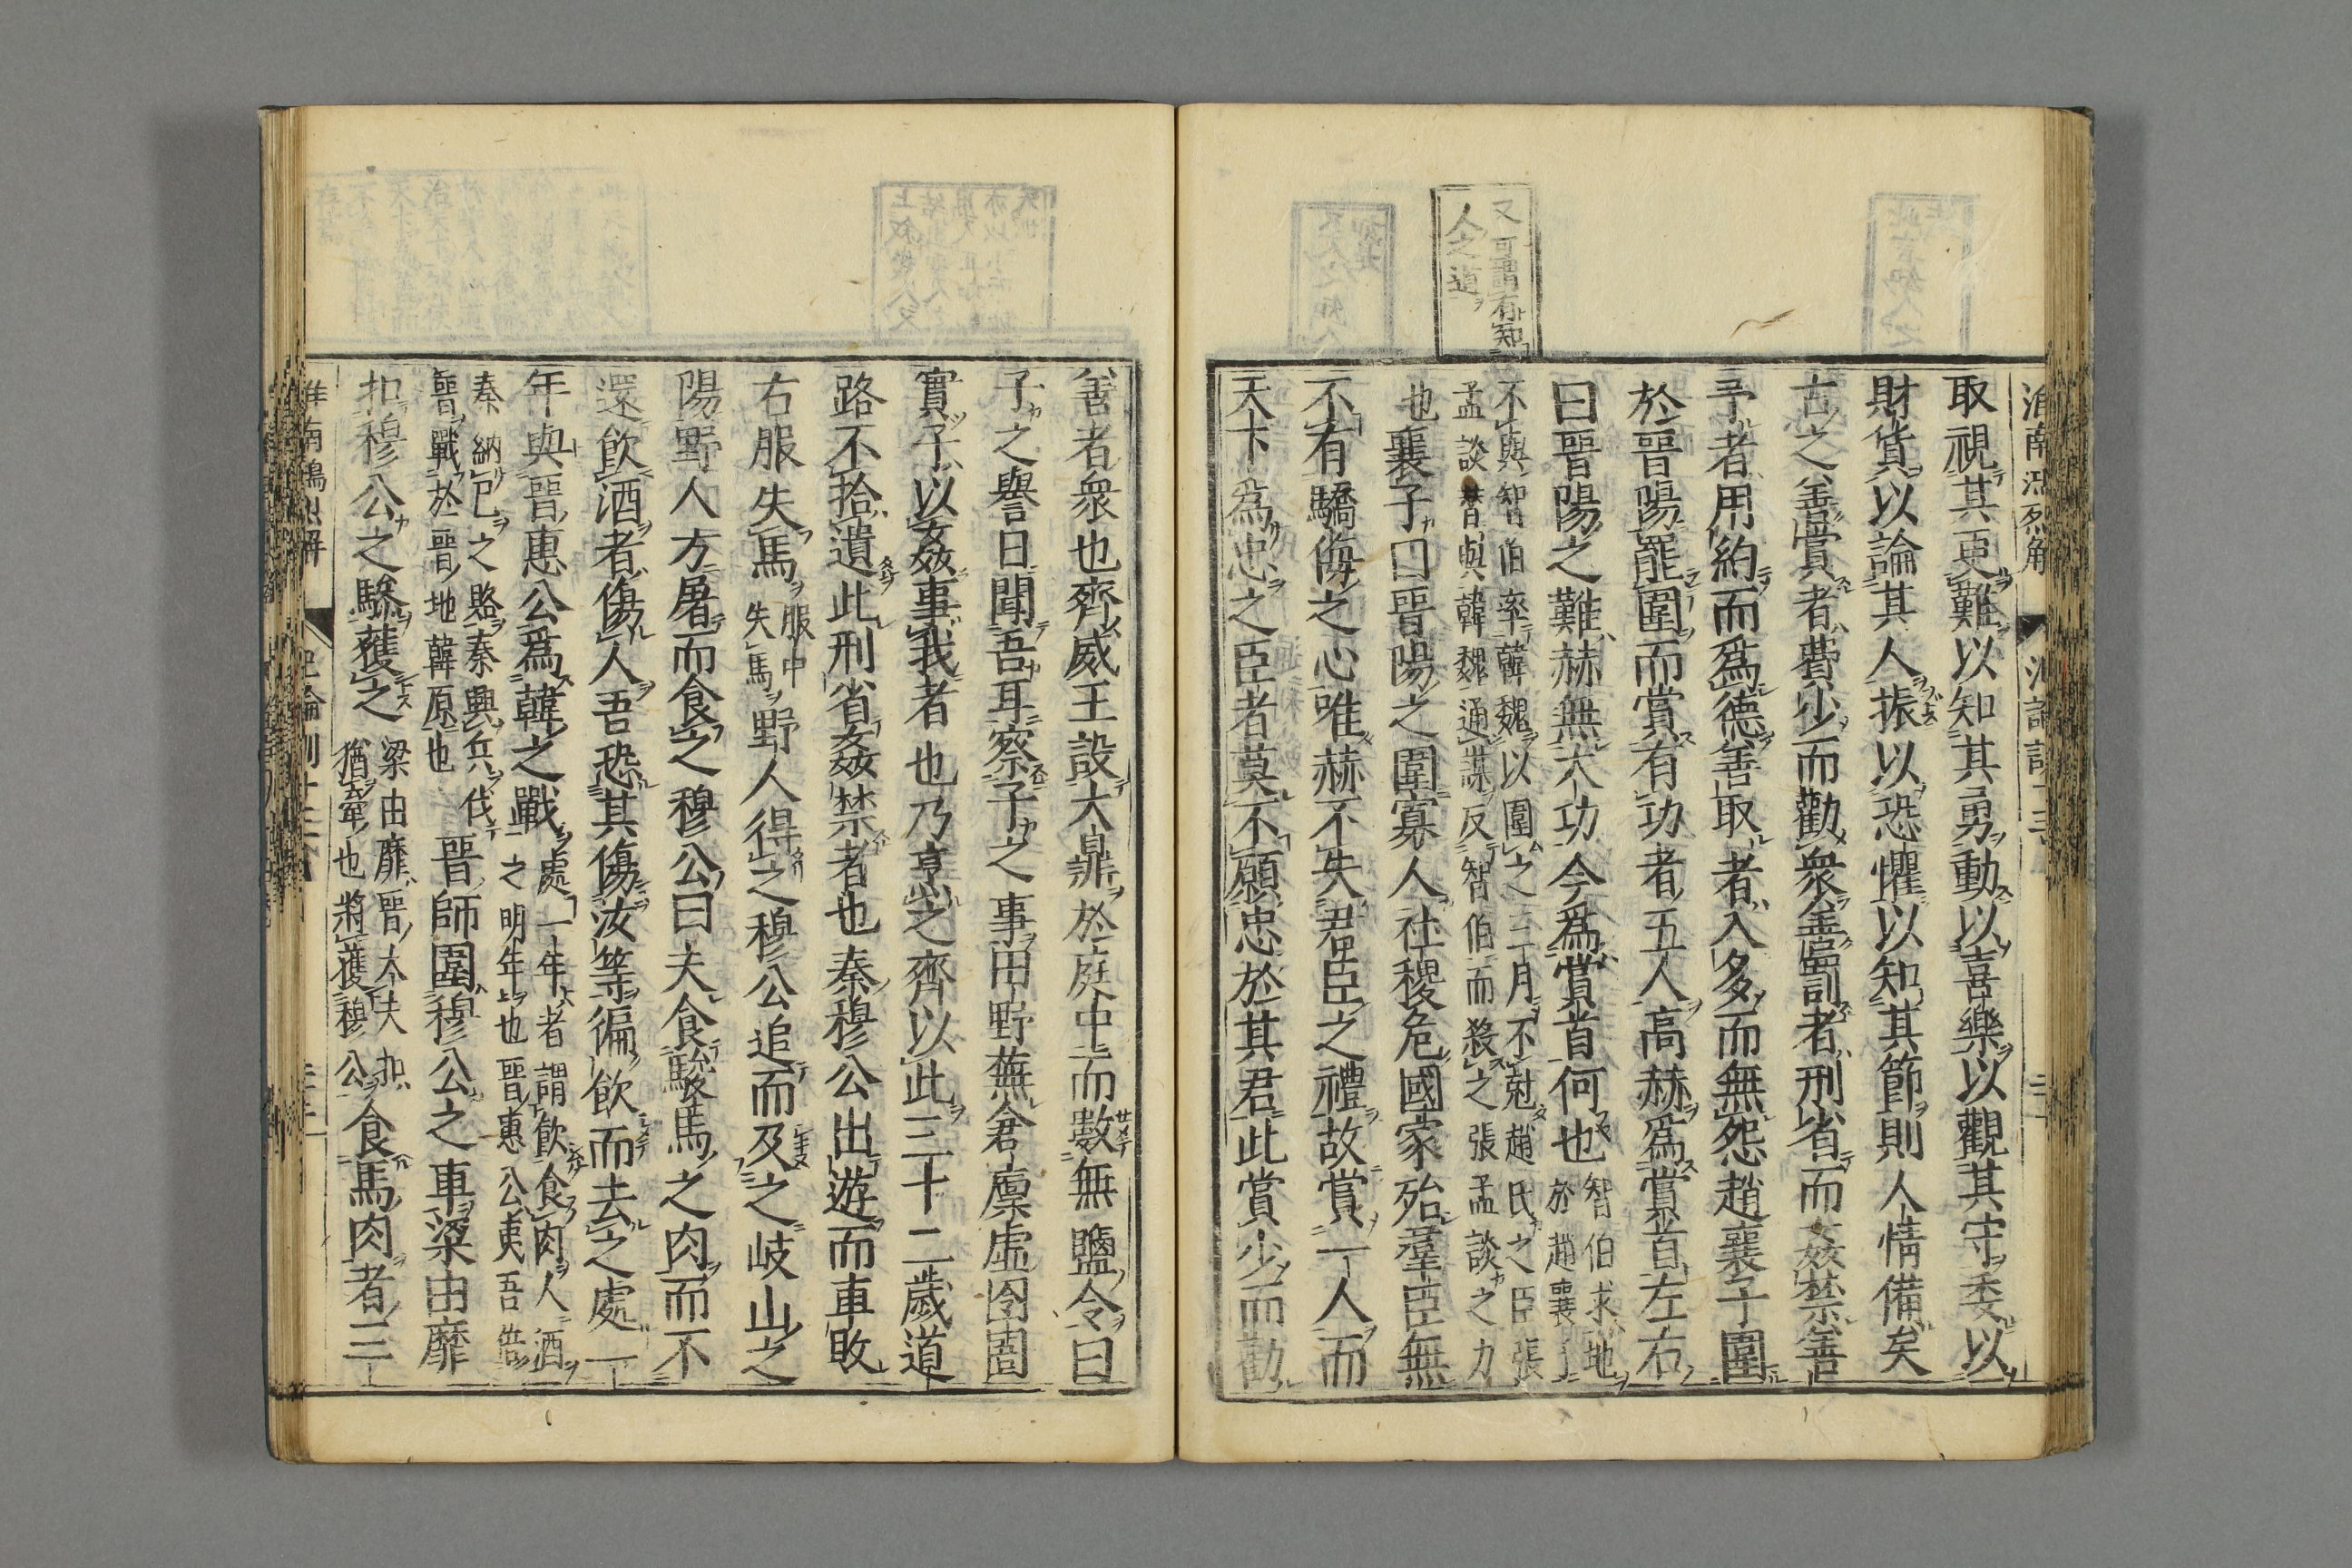 又可謂有知
人之道
取視其更難以知其勇動以喜樂以觀其守委以
財貨以論其人振以恐懼以知其節則人情備矣
古之善賞者費少而勸衆善罰者刑省而姦禁善
予者用約而爲德善取者入多而無怨趙襄子圍
於晉陽罷圍而賞有功者五人高赫爲賞首左右
曰晉陽之難赫無大功今爲賞首何也智伯求地
於趙襄子
不與智伯率韓魏以圍之三月不尅趙氏之臣張
孟談替與韓魏通謀反智伯而殺之張孟談之力
也襄子曰晉陽之圍寡人社稷危國家殆羣臣無
不有驕侮之心唯赫不失君臣之禮故賞一人而
天下爲忠之臣者莫不願忠於其君此賞少而勸
善者衆也齊威王設大鼎於庭中而數無鹽令曰
子之譽日聞吾耳察子之事田野蕪倉廩虛囹圄
實子以姦事我者也乃烹之齊以此三十二歲道
路不拾遺此刑省姦禁者也秦穆公出遊而車敗
右服失馬服中
失馬野人得之穆公追而及之岐山之
陽野人方屠而食之穆公曰夫食駿馬之肉而不
還飲酒者傷人吾恐其傷汝等徧飲而去之處一
年與晉惠公爲韓之戰處一年者謂飲食肉人酒
之明年也晉惠公夷吾倍
秦納已之賂秦興兵伐
晉戰於晉地韓原也晉師圍穆公之車梁由靡
扣穆公之驂獲之梁由靡晉大夫扣
猶牽也將獲穆公食馬肉者三